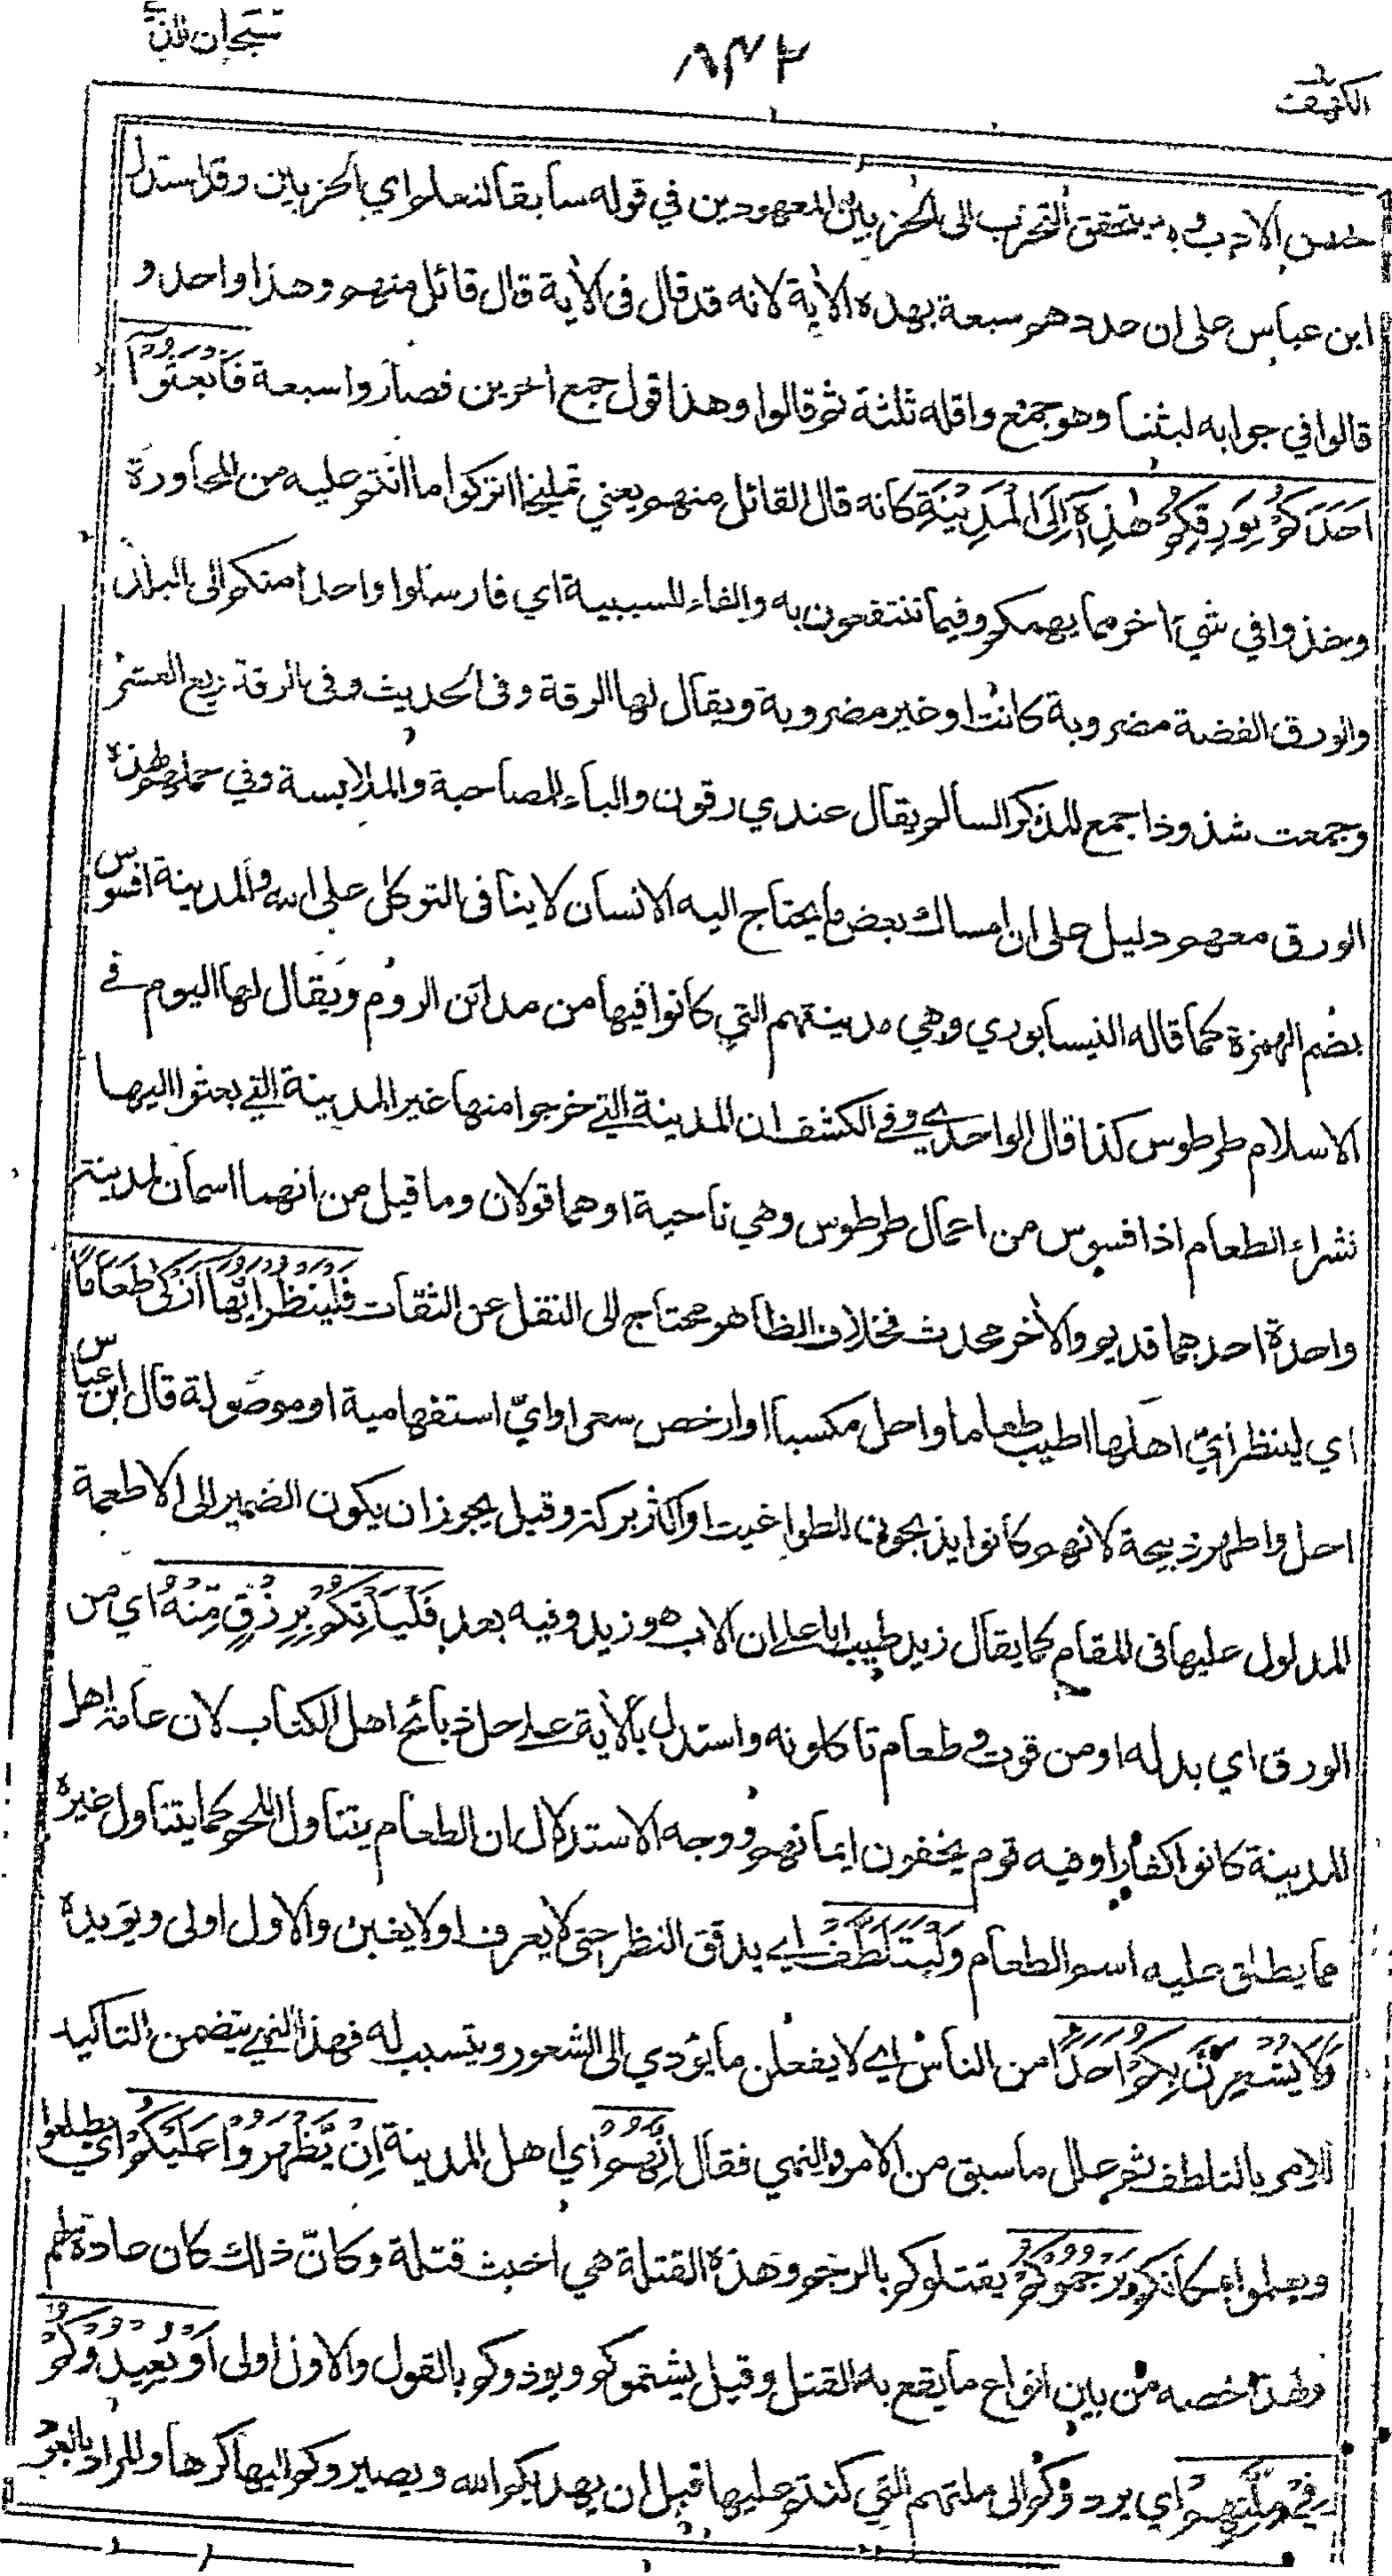 سبحان الذي
٨٤٢
الكهف
حسن الادب وبه يتحقق التحزب الى الحزبين المعهودين في قوله سابقا لنعلم اي الحزبين وقد استدل
ابن عباس على ان عددهم سبعة بهذه الأية لانه قد قال فى الأية قال قائل منهم وهذا واحد و
قالوا في جوابه لبثنا وهو جمع واقله ثلثة ثم قالوا وهذا قول جمع اخرين فصاروا سبعة فَابْعَثُوْٓا
اَحَدَكُمْ بِوَرِقِكُمْ هٰذِهٖٓ اِلَى الْمَدِيْنَةِ كانه قال القائل منهم يعني تمليخا اتركوا ما انتم عليه من المحاورة
وخذوا في شيء اخر مما يهمكم وفيما تنتفعون به والفاء للسببية اي فارسلوا واحدا منكم الى البلد
والورق الفضة مضروبة كانت او غير مضروبة ويقال لها الرقة وفى الحديث وفى الرقة ربع العشر
وجمعت شذوذا جمع المذكر السالم يقال عندي رقون والباء للمصاحبة والملابسة وفي حملهم هذه
الورق معهم دليل على ان امساك بعض ما يحتاج اليه الانسان لا ينافى التوكل على الله والمدينة افسوس
بضم الهمزة كما قاله النيسابوري وهي مدينتهم التي كانوا فيها من مدائن الروم ويقال لها اليوم في
الاسلام طرطوس كذا قال الواحدي وفي الكشف ان المدينة التي خرجوا منها غير المدينة التي بعثوا اليها
لشراء الطعام اذ افسوس من اعمال طرطوس وهي ناحية او هما قولان وما قيل من انهما اسمان لمدينة
واحدة احدهما قديم والأخر محدث فخلاف الظاهر محتاج الى النقل عن الثقات فَلْيَنْظُرْ اَيُّهَآ اَزْكٰى طَعَامًا
اي لينظر ايّ اهلها اطيب طعاما واحل مكسبا او ارخص سعرا وايّ استفهامية او موصولة قال ابن عباس
احل واطهر ذبيحة لانهم كانوا يذبحون للطواغيت او اكثر بركة وقيل يجوز ان يكون الضمير الى الاطعمة
المدلول عليها فى المقام كما يقال زيد طيب ابا على ان الاب هو زيد وفيه بعد فَلْيَاْتِكُمْ بِرِزْقٍ مِّنْهُ اي من
الورق اي بدله او من قوت وطعام تأكلونه واستدل بالأية على حل ذبائح اهل الكتاب لان عامة اهل
المدينة كانوا كفارا وفيه قوم يخفون ايمانهم ووجه الاستدلال ان الطعام يتناول اللحم كما يتناول غيره
مما يطلق عليه اسم الطعام وَلْيَتَلَطَّفْ اي يدقق النظر حتى لا يعرف او لا يغبن والاول اولى ويؤيده
وَلَا يُشْعِرَنَّ بِكُمْ اَحَدًا من الناس اي لا يفعلن ما يؤدي الى الشعور ويتسبب له فهذا النهي يتضمن التاكيد
للامر بالتلطف ثم علل ما سبق من الامر والنهي فقال اِنَّهُمْ اي اهل المدينة اِنْ يَّظْهَرُوْا عَلَيْكُمْ اي يطلعوا
ويعلموا بمكانكم يَرْجُمُوْكُمْ يقتلوكم بالرجم وهذه القتلة هي اخبث قتلة وكانّ ذلك كان عادة لهم
ولهذا خصه من بين انواع ما يقع به القتل وقيل يشتموكم ويؤذوكم بالقول والاول اولى اَوْ يُعِيْدُوْكُمْ
فِيْ مِلَّتِهِمْ اي يردوكم الى ملتهم التي كنتم عليها قبل ان يهديكم الله ويصيروكم اليها كرها والمراد بالعود